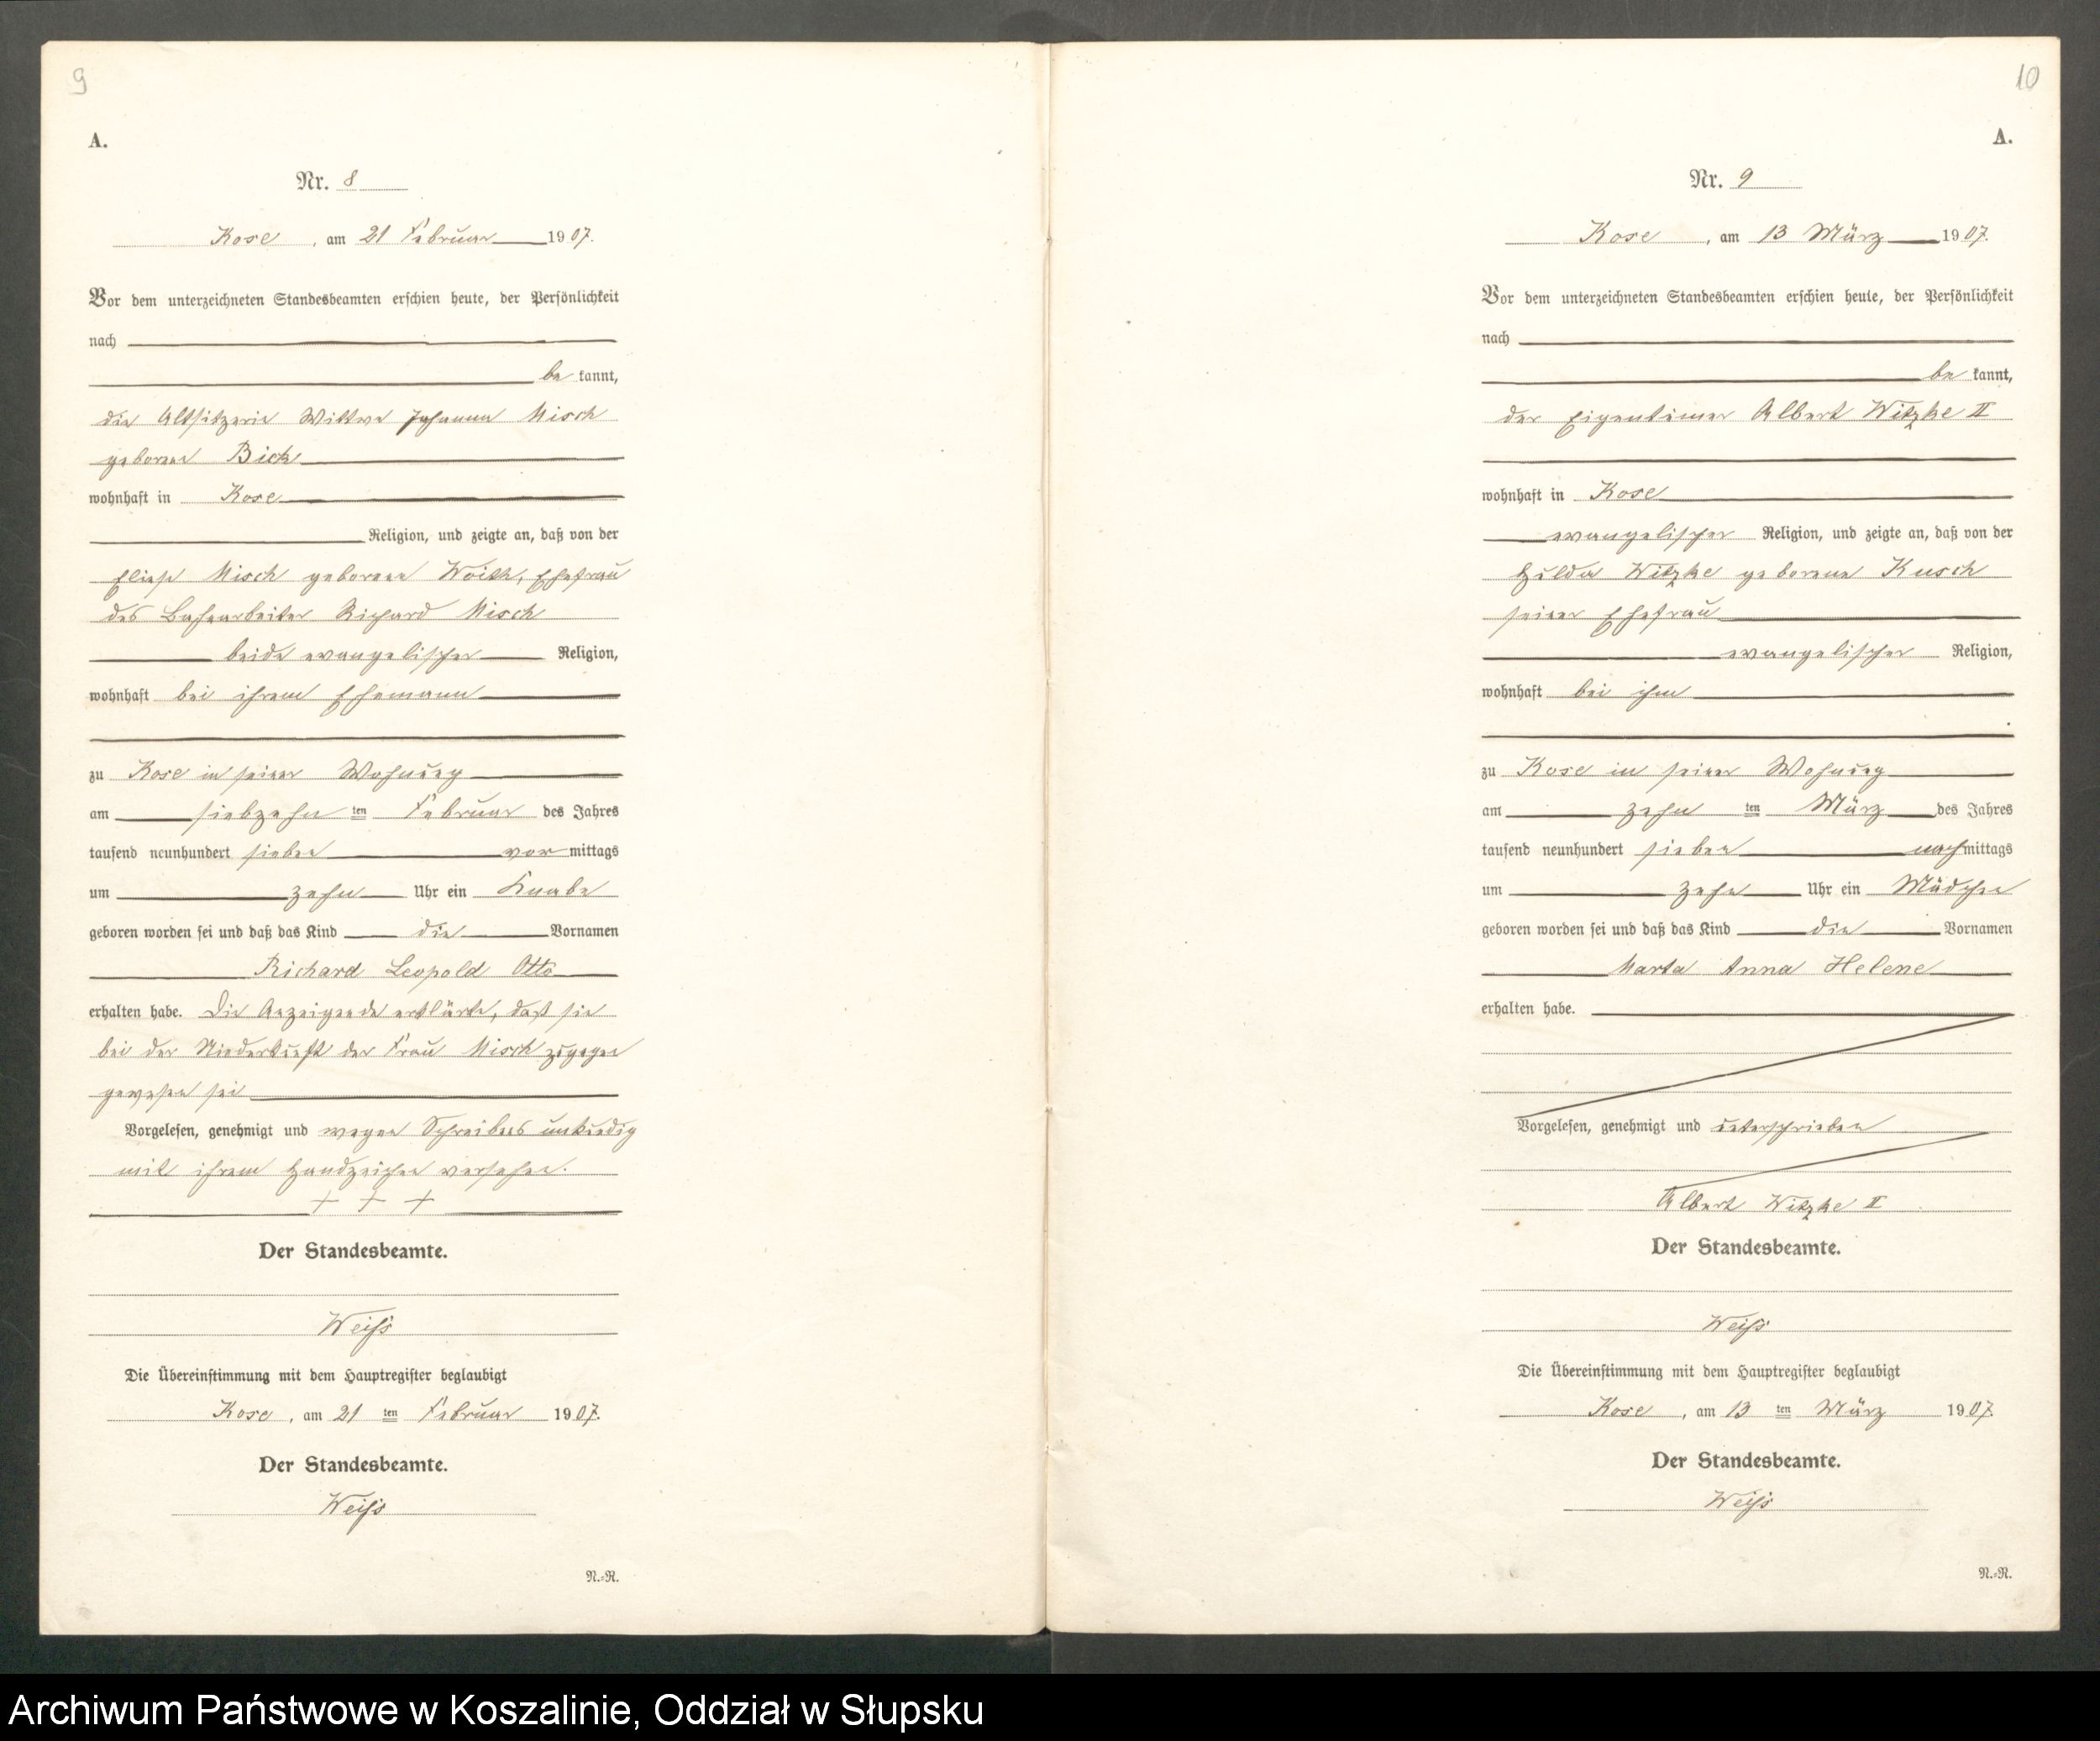 9
A.
Nr. 8
Kose, am 21 Februar 1907.
Vor dem unterzeichneten Standesbeamten erschien heute, der Persönlichkeit
nach
be kannt,
die Altsitzerin Wittwe Johanna Misch
geborene Bich
wohnhaft in Kose
Religion, und zeigte an, daß von der
Eliese Misch geborene Woith, Ehefrau
des Bahnarbeiter Richard Misch
beide evangelischer Religion,
wohnhaft bei ihrem Ehemann
zu Kose in seiner Wohnung
am siebzehn ten Februar des Jahres
tausend neunhundert sieben vor mittags
um zehn Uhr ein Knabe
geboren worden sei und daß das Kind die Vornamen
Richard Leopold Otto
erhalten habe. Die Anzeigende erklärte, daß sie
bei der Niederkunft der Frau Misch zugegen
gewesen sei
Vorgelesen, genehmigt und wegen Schreibens unkundig
mit ihrem Handzeichen versehen.
+ + +
Der Standesbeamte.
Weiß
Die Übereinstimmung mit dem Hauptregister beglaubigt
Kose, am 21 ten Februar 1907.
Der Standesbeamte.
Weiß
N.-R.
10
A.
Nr. 9
Kose, am 13 März 1907.
Vor dem unterzeichneten Standesbeamten erschien heute, der Persönlichkeit
nach
be kannt,
der Eigentümer Albert Witzke II
wohnhaft in Kose
evangelischer Religion, und zeigte an, daß von der
Hulda Witzke geborene Kusch
seiner Ehefrau
evangelischer Religion,
wohnhaft bei ihm
zu Kose in seiner Wohnung
am zehn ten März des Jahres
tausend neunhundert sieben nachmittags
um zehn Uhr ein Mädchen
geboren worden sei und daß das Kind die Vornamen
Marta Anna Helene
erhalten habe.
Vorgelesen, genehmigt und unterschrieben
Albert Witzke II
Der Standesbeamte.
Weiß
Die Übereinstimmung mit dem Hauptregister beglaubigt
Kose, am 13 ten März 1907.
Der Standesbeamte.
Weiß
N.-R.
Archiwum Państwowe w Koszalinie, Oddział w Słupsku